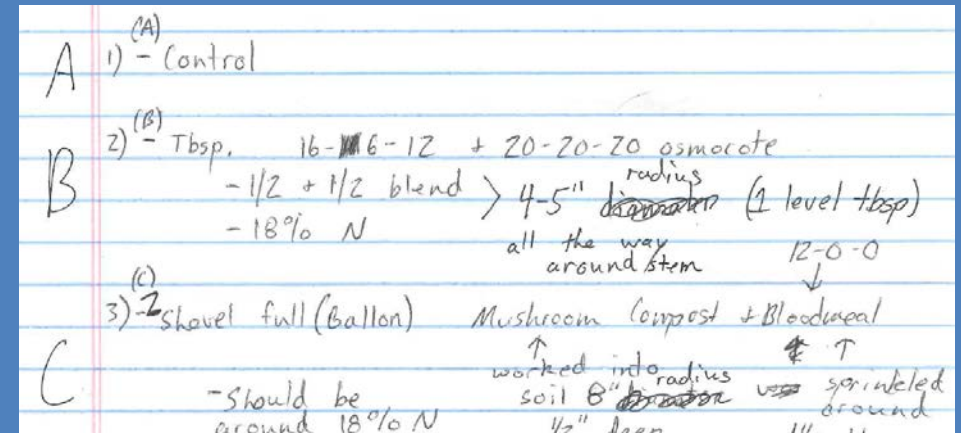 (A)
A 1) - Control
(B)
2) - Tbsp. 16-6-12 + 20-20-20 osmocote
B - 1/2 + 1/2 blend > 4-5" radius (1 level tbsp)
- 18% N all the way around stem
12-0-0
(C)
3) -2 Shovel full (Ballon) Mushroom Compost + Bloodmeal
C - Should be around 18% N
worked into soil 8" radius
1/2" deep
sprinkeled around